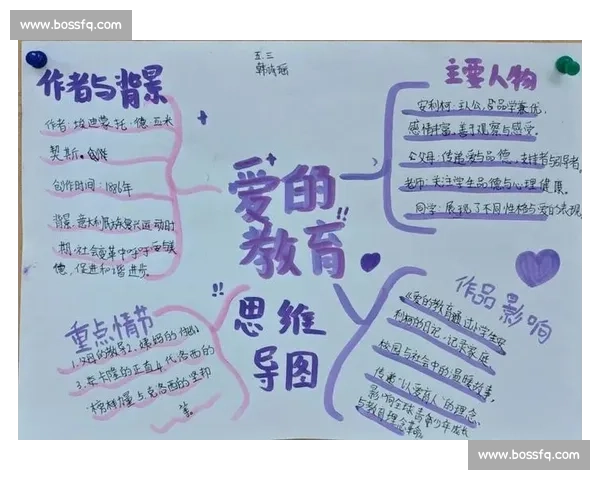 www.bossfq.com
五.三
韩诗瑶
作者与背景
作者:埃迪蒙托·德·亚米
契斯.创作
创作时间:1886年
背景:意大利民族复兴运动时
期,社会变革中呼吁爱与美
德,促进和谐进步。
主要人物
安利柯:主人公,品学兼优,
感情丰富,善于观察与感受。
父母:传递爱与品德,支持者与引导者。
老师:关注学生品德与心理健康。
同学:展现了不同性格与爱的表现
爱的
教育
思维
导图
重点情节
1.父母的教导2.
3.卡隆的正直4.代洛西的
榜样作用5.克洛西的坚韧
等
作品影响
《爱的教育通过小学生安
利柯的日记,记录家庭
校园与社会中的温暖故事,
传递“以爱育人”的理念
影响全球青少年成长
与教育理念革命。
www.bossfq.com